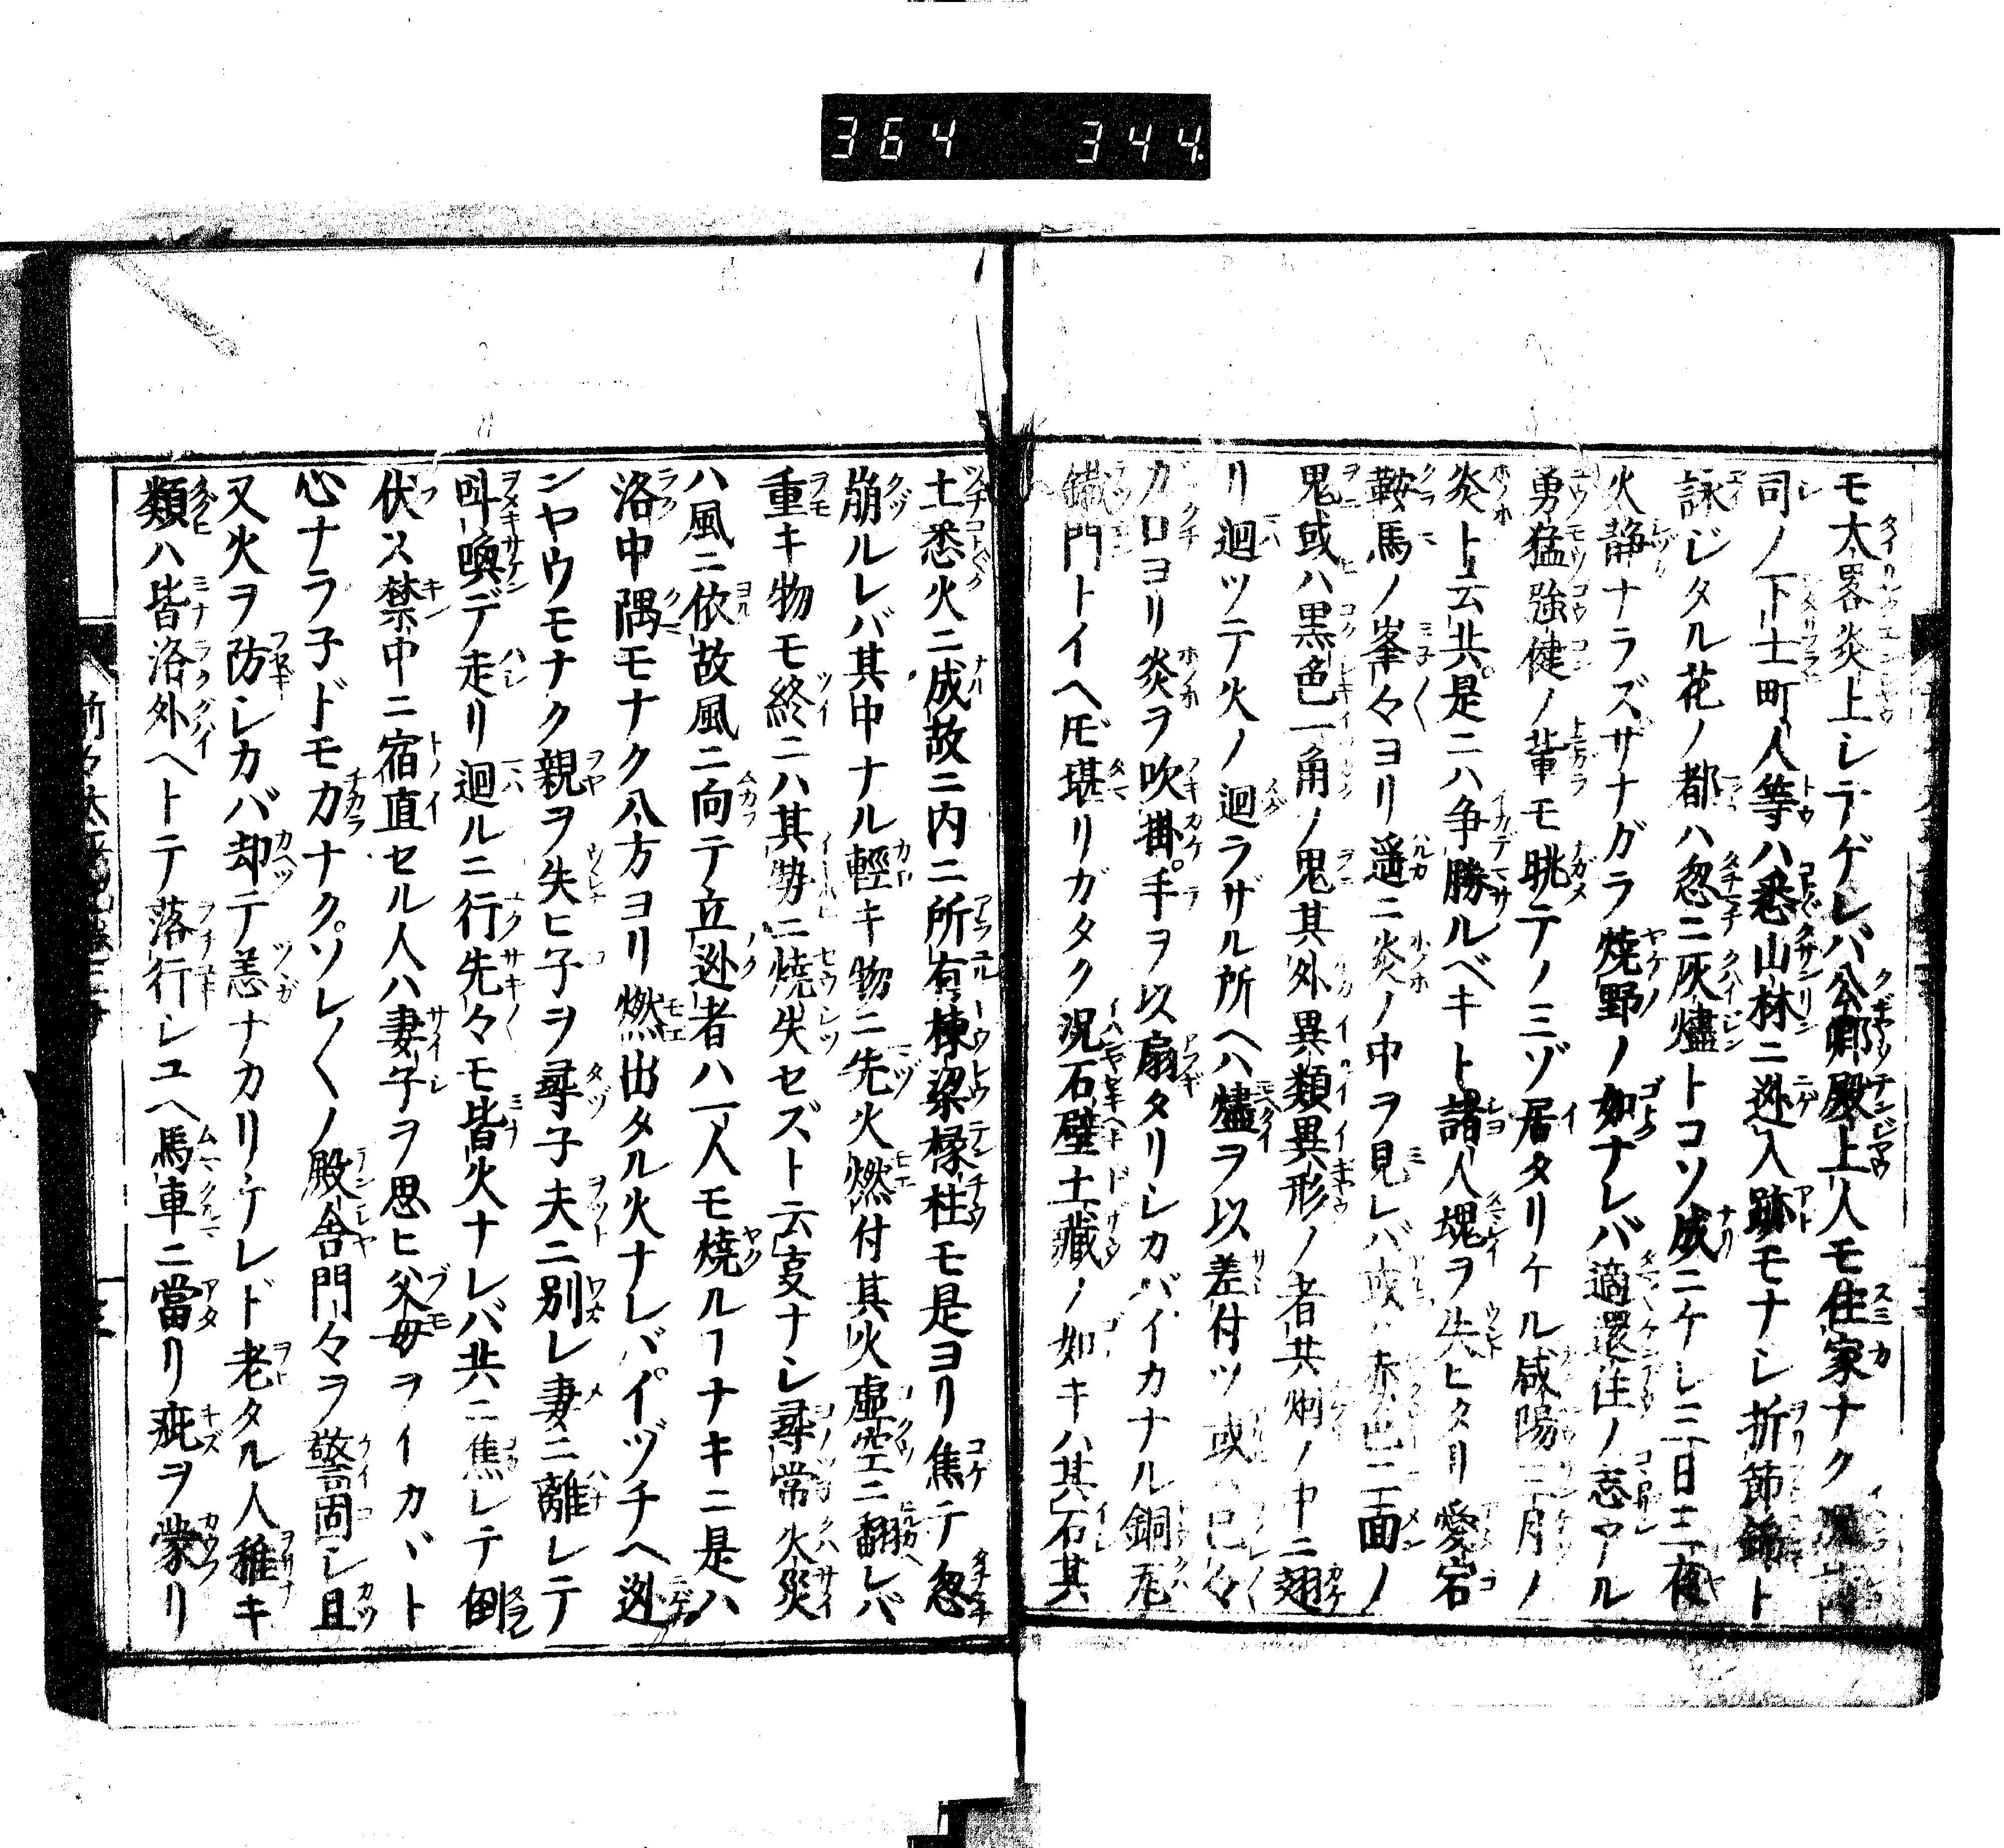 364 344
モ大畧炎上シテゲレバ公卿殿上人モ住家ナク
司ノ下士町人等ハ悉山林ニ迯入跡モナシ折節錦ト
詠ジタル花ノ都ハ忽ニ灰燼トコソ成ニケシ三日三夜
火静ナラズサナガラ焼野ノ如ナレバ適還住ノ志アル
勇猛強健ノ輩モ眺テノミゾ居タリケル咸陽三月ノ
炎ト云共是ニハ争勝ルベキト諸人塊ヲ失ヒタリ愛宕
鞍馬ノ峯々ヨリ遥ニ炎ノ中ヲ見レバ或ハ赤色二面ノ
鬼或ハ黒色一角ノ鬼其外異類異形ノ者共炯ノ中ニ翅
リ迴ツテ火ノ迴ラザル所ヘハ燼ヲ以差付ツ或ハ已々
カ口ヨリ炎ヲ吹掛手ヲ以扇タリシカバイカナル銅
鐵門トイヘ𪜈堪リガタク況石壁土蔵ノ如キハ其石其
土悉火ニ成故ニ内ニ所有棟梁椽柱モ是ヨリ焦テ忽
崩ルレバ其中ナル輕キ物ニ先火燃付其火虚空ニ翻レバ
重キ物モ終ニハ其勢ニ焼失セズト云叓ナシ尋常火災
ハ風ニ依故風ニ向テ立迯者ハ一人モ燒ルヿナキニ是ハ
洛中隅モナク八方ヨリ燃出タル火ナレバイヅチヘ迯
ンヤウモナク親ヲ失ヒ子ヲ尋子夫ニ別レ妻ニ離レテ
叫喚デ走リ迴ルニ行先々モ皆火ナレバ共ニ焦レテ倒
伏ス禁中ニ宿直セル人ハ妻子ヲ思ヒ父母ヲイカヾト
心ナラ子ドモカナクソレ〱ノ殿舎門々ヲ警固シ且
又火ヲ防シカバ却テ恙ナカリケレド老タル人稚キ
類ハ皆洛外ヘトテ落行シユヘ馬車ニ當リ疵ヲ蒙リ